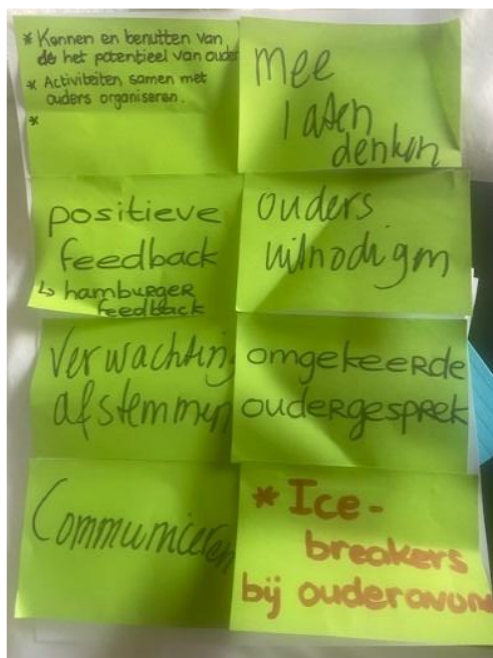 * Kennen en benutten van
de het potentieel van ouder
* Activiteiten samen met
ouders organiseren.
*
mee
laten
denken
positieve
feedback
↳ hamburger
feedback
ouders
uitnodigen
Verwachting
afstemmen
omgekeerde
oudergesprek
Communiceren
* Ice-
breakers
bij ouderavond